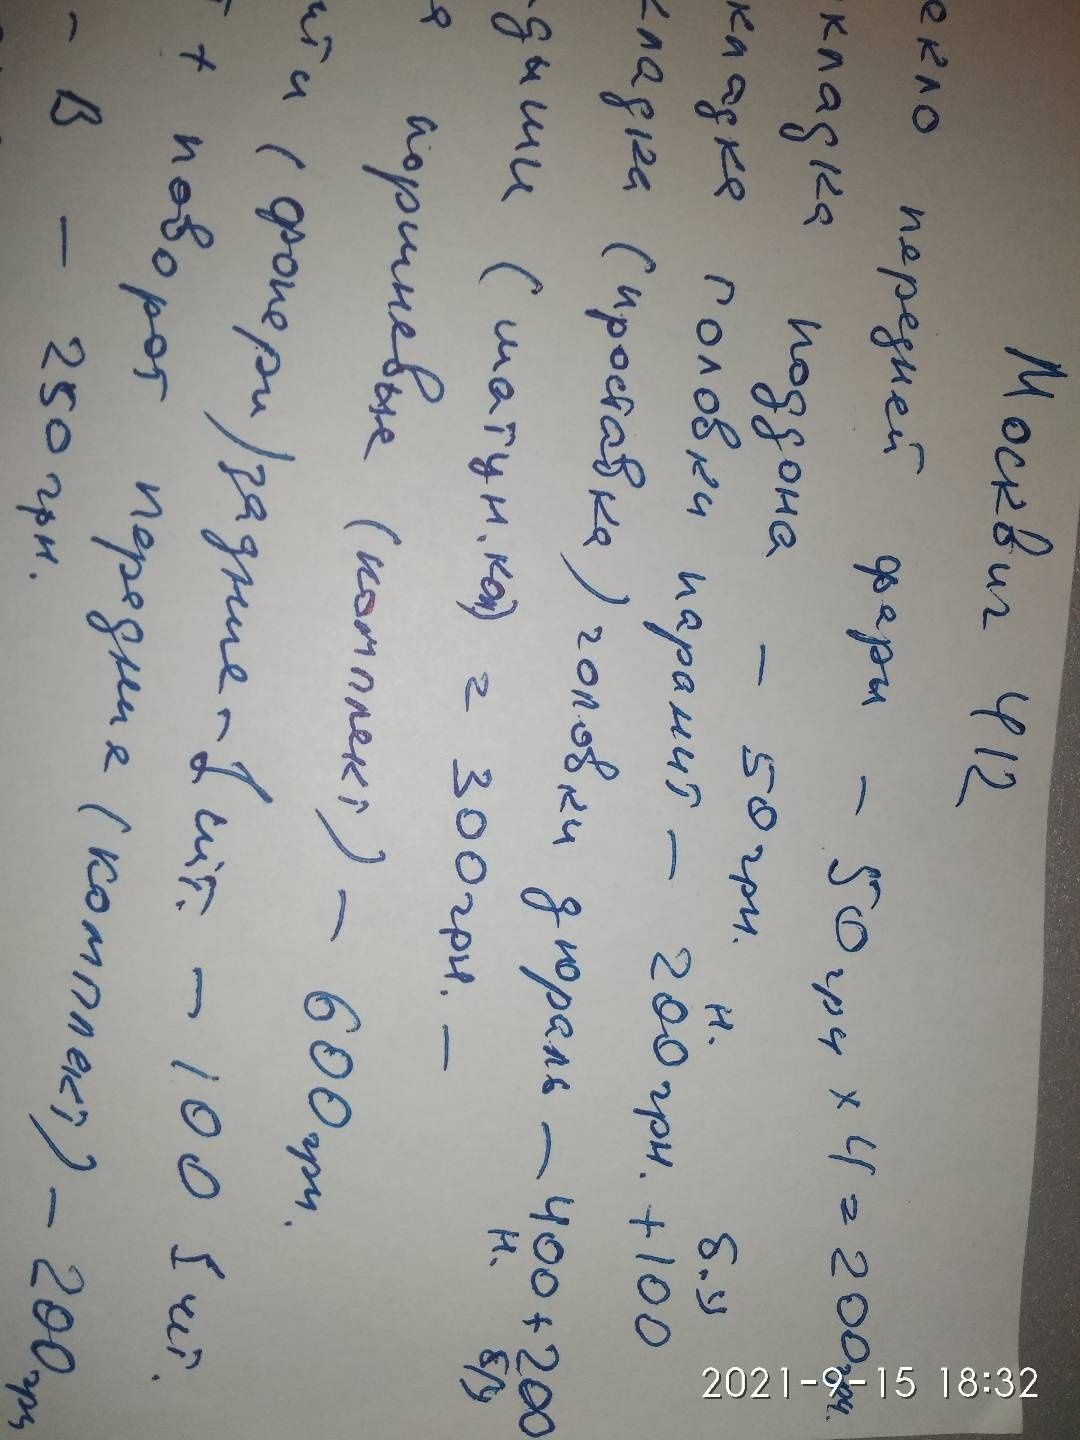 Москвич 412
екло передней фары – 50 грн x 4 = 200 грн.
кладка поддона – 50 грн.
кладка головки паранит – 200 грн. н. + 100 б.у
кладка (проставка) головки дюраль – 400 н. + 200 б/у
дыши (шатун. кол) = 300 грн. –
я поршневые (комплект) – 600 грн.
ити (фонари) задние – 1 шт. – 100 1 шт.
т + поворот передние (комплект) – 200 грн
- В – 250 грн.
2021-9-15 18:32